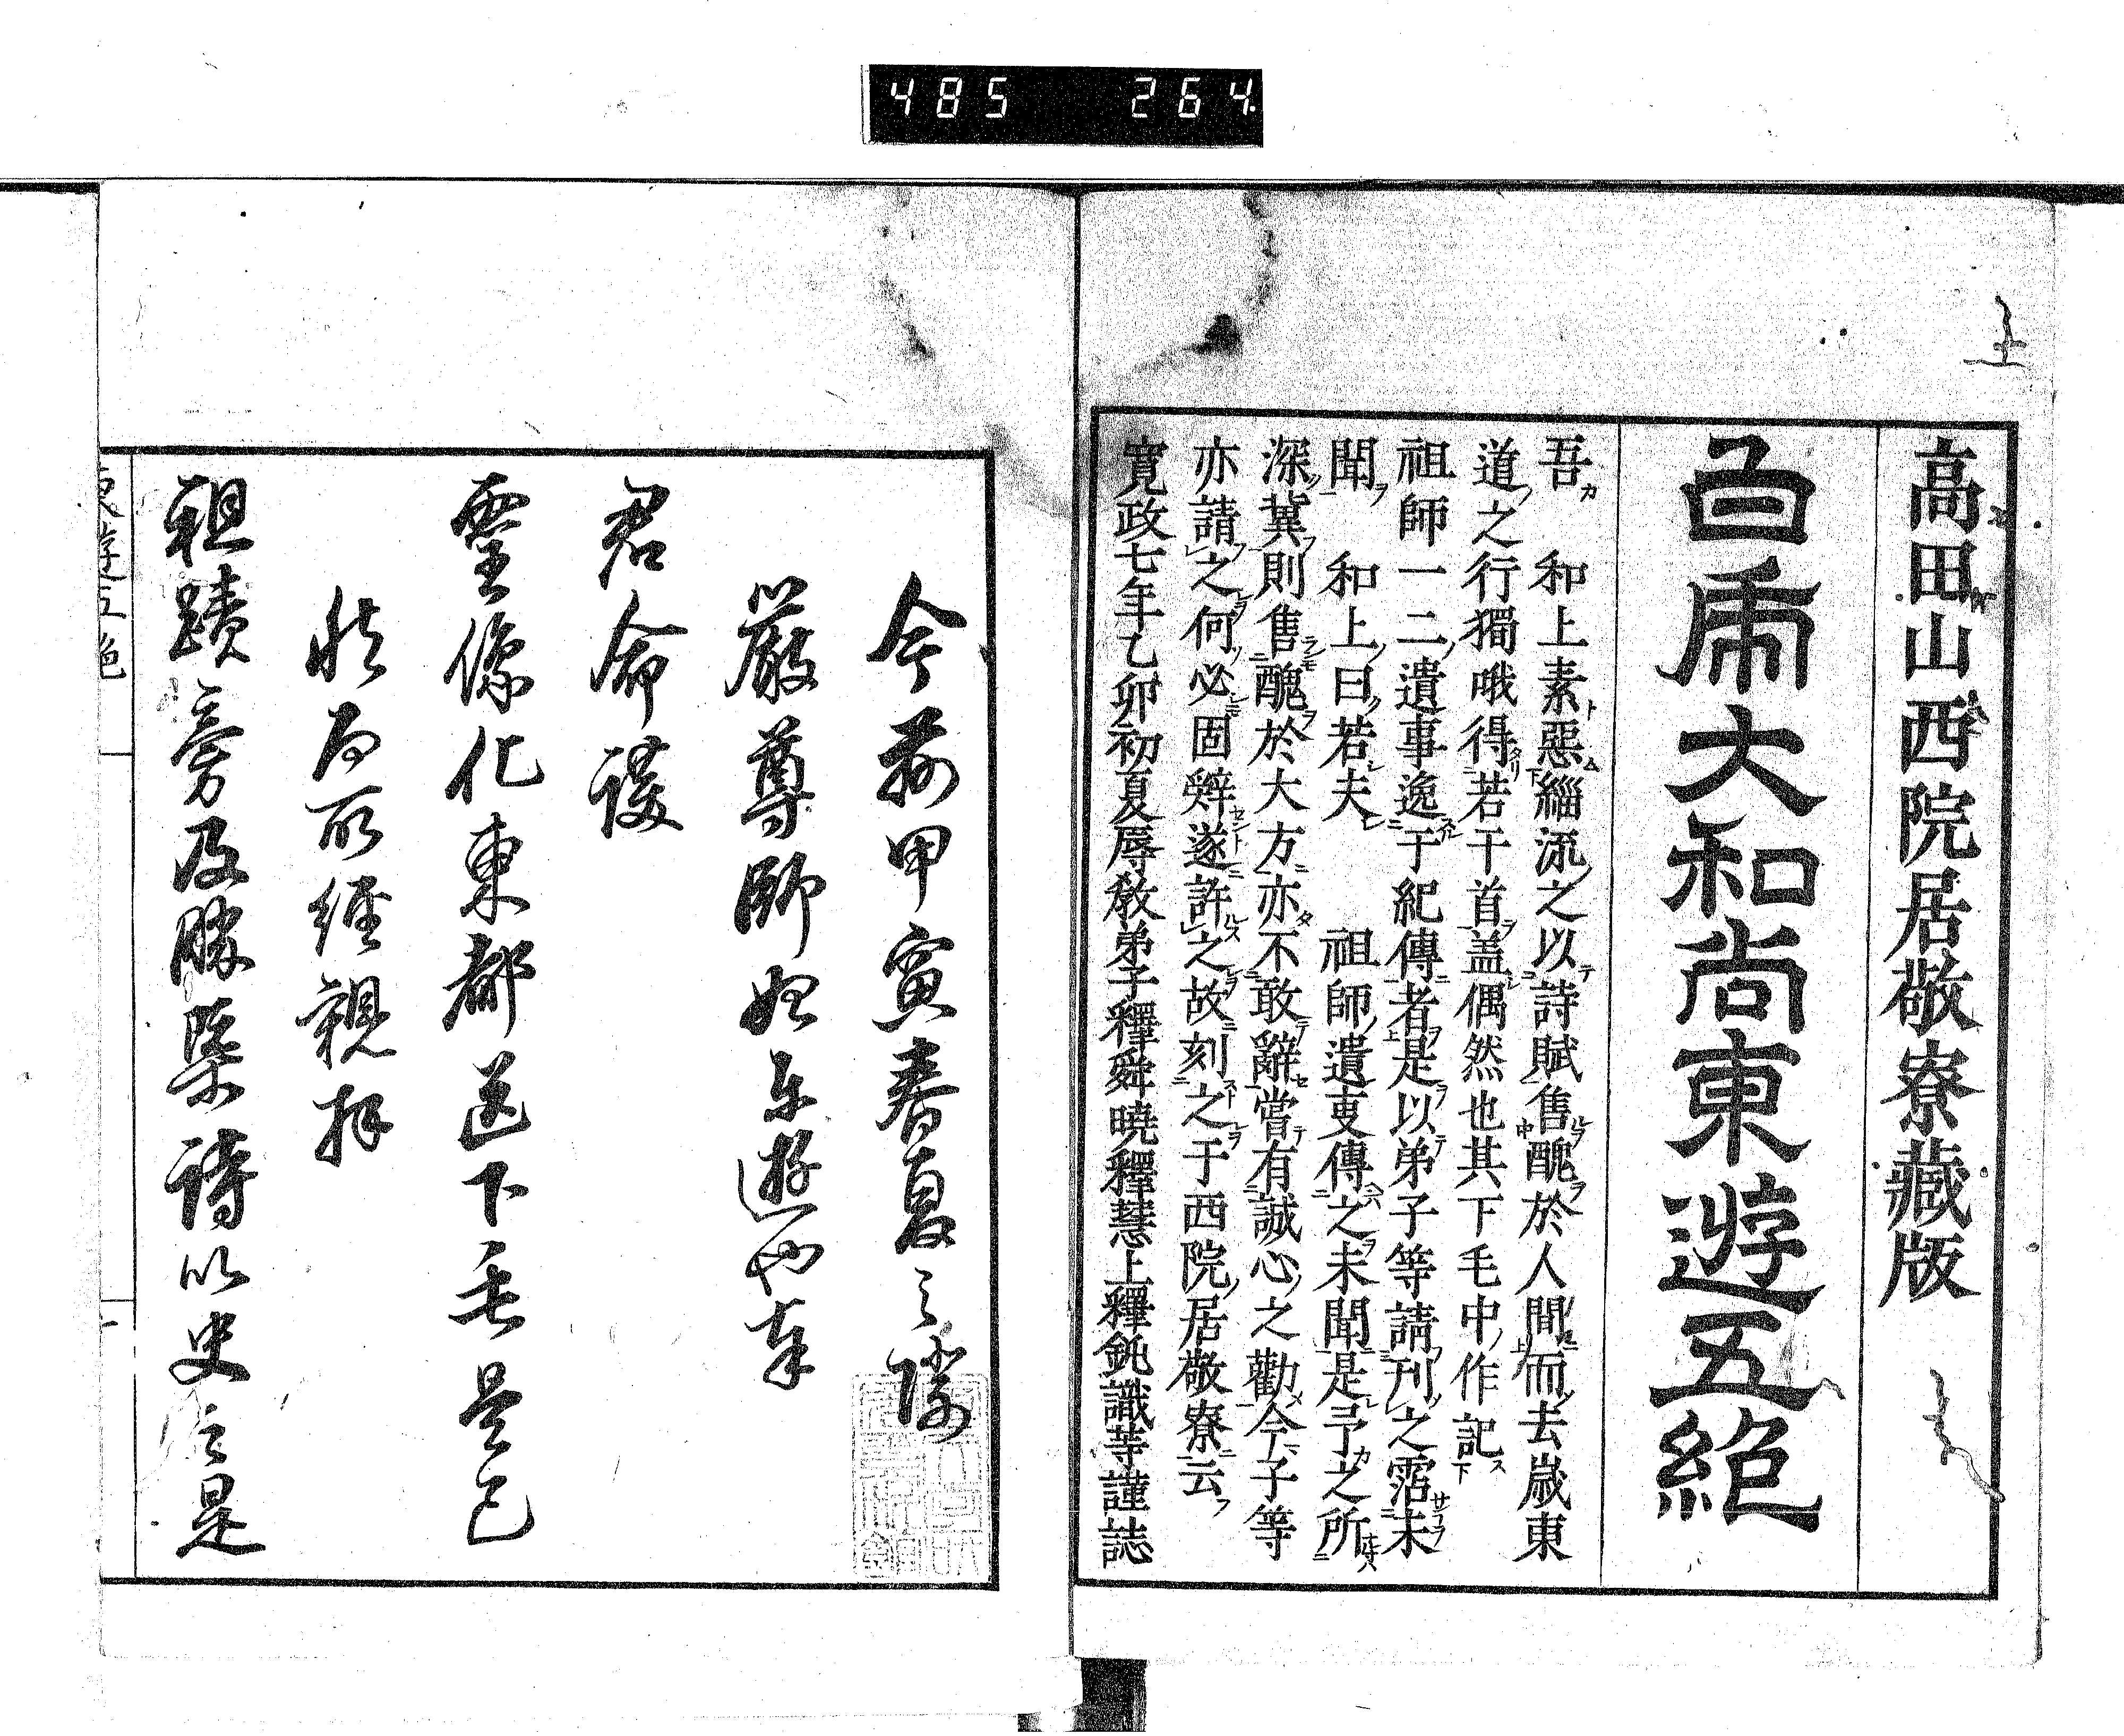 485 264
高田山西院居敬寮藏版
大和尚東遊五絶
吾 和上素惡緇流之以詩賦售醜於人間而去歲東
道之行獨哦得若干首盖偶然也其下毛中作記
祖師一二遺事逸于紀傳者是以弟子等請刊之霑未
聞 和上曰若夫 祖師遺叓傳之未聞是予之所
深冀則售醜於大方亦不敢辭嘗有誠心之勸今子等
亦請之何必固辤遂許之故刻之于西院居敬寮云
寛政七年乙卯初夏辱教弟子釋舜曉釋慧上釋鈍識等謹誌
今茲甲寅春夏之際
嚴尊師如東遊也奉
君命護
聖像化東都巡下毛是已
然而所經親拜
祖蹟旁及勝槩詩以史之是
東遊五絶